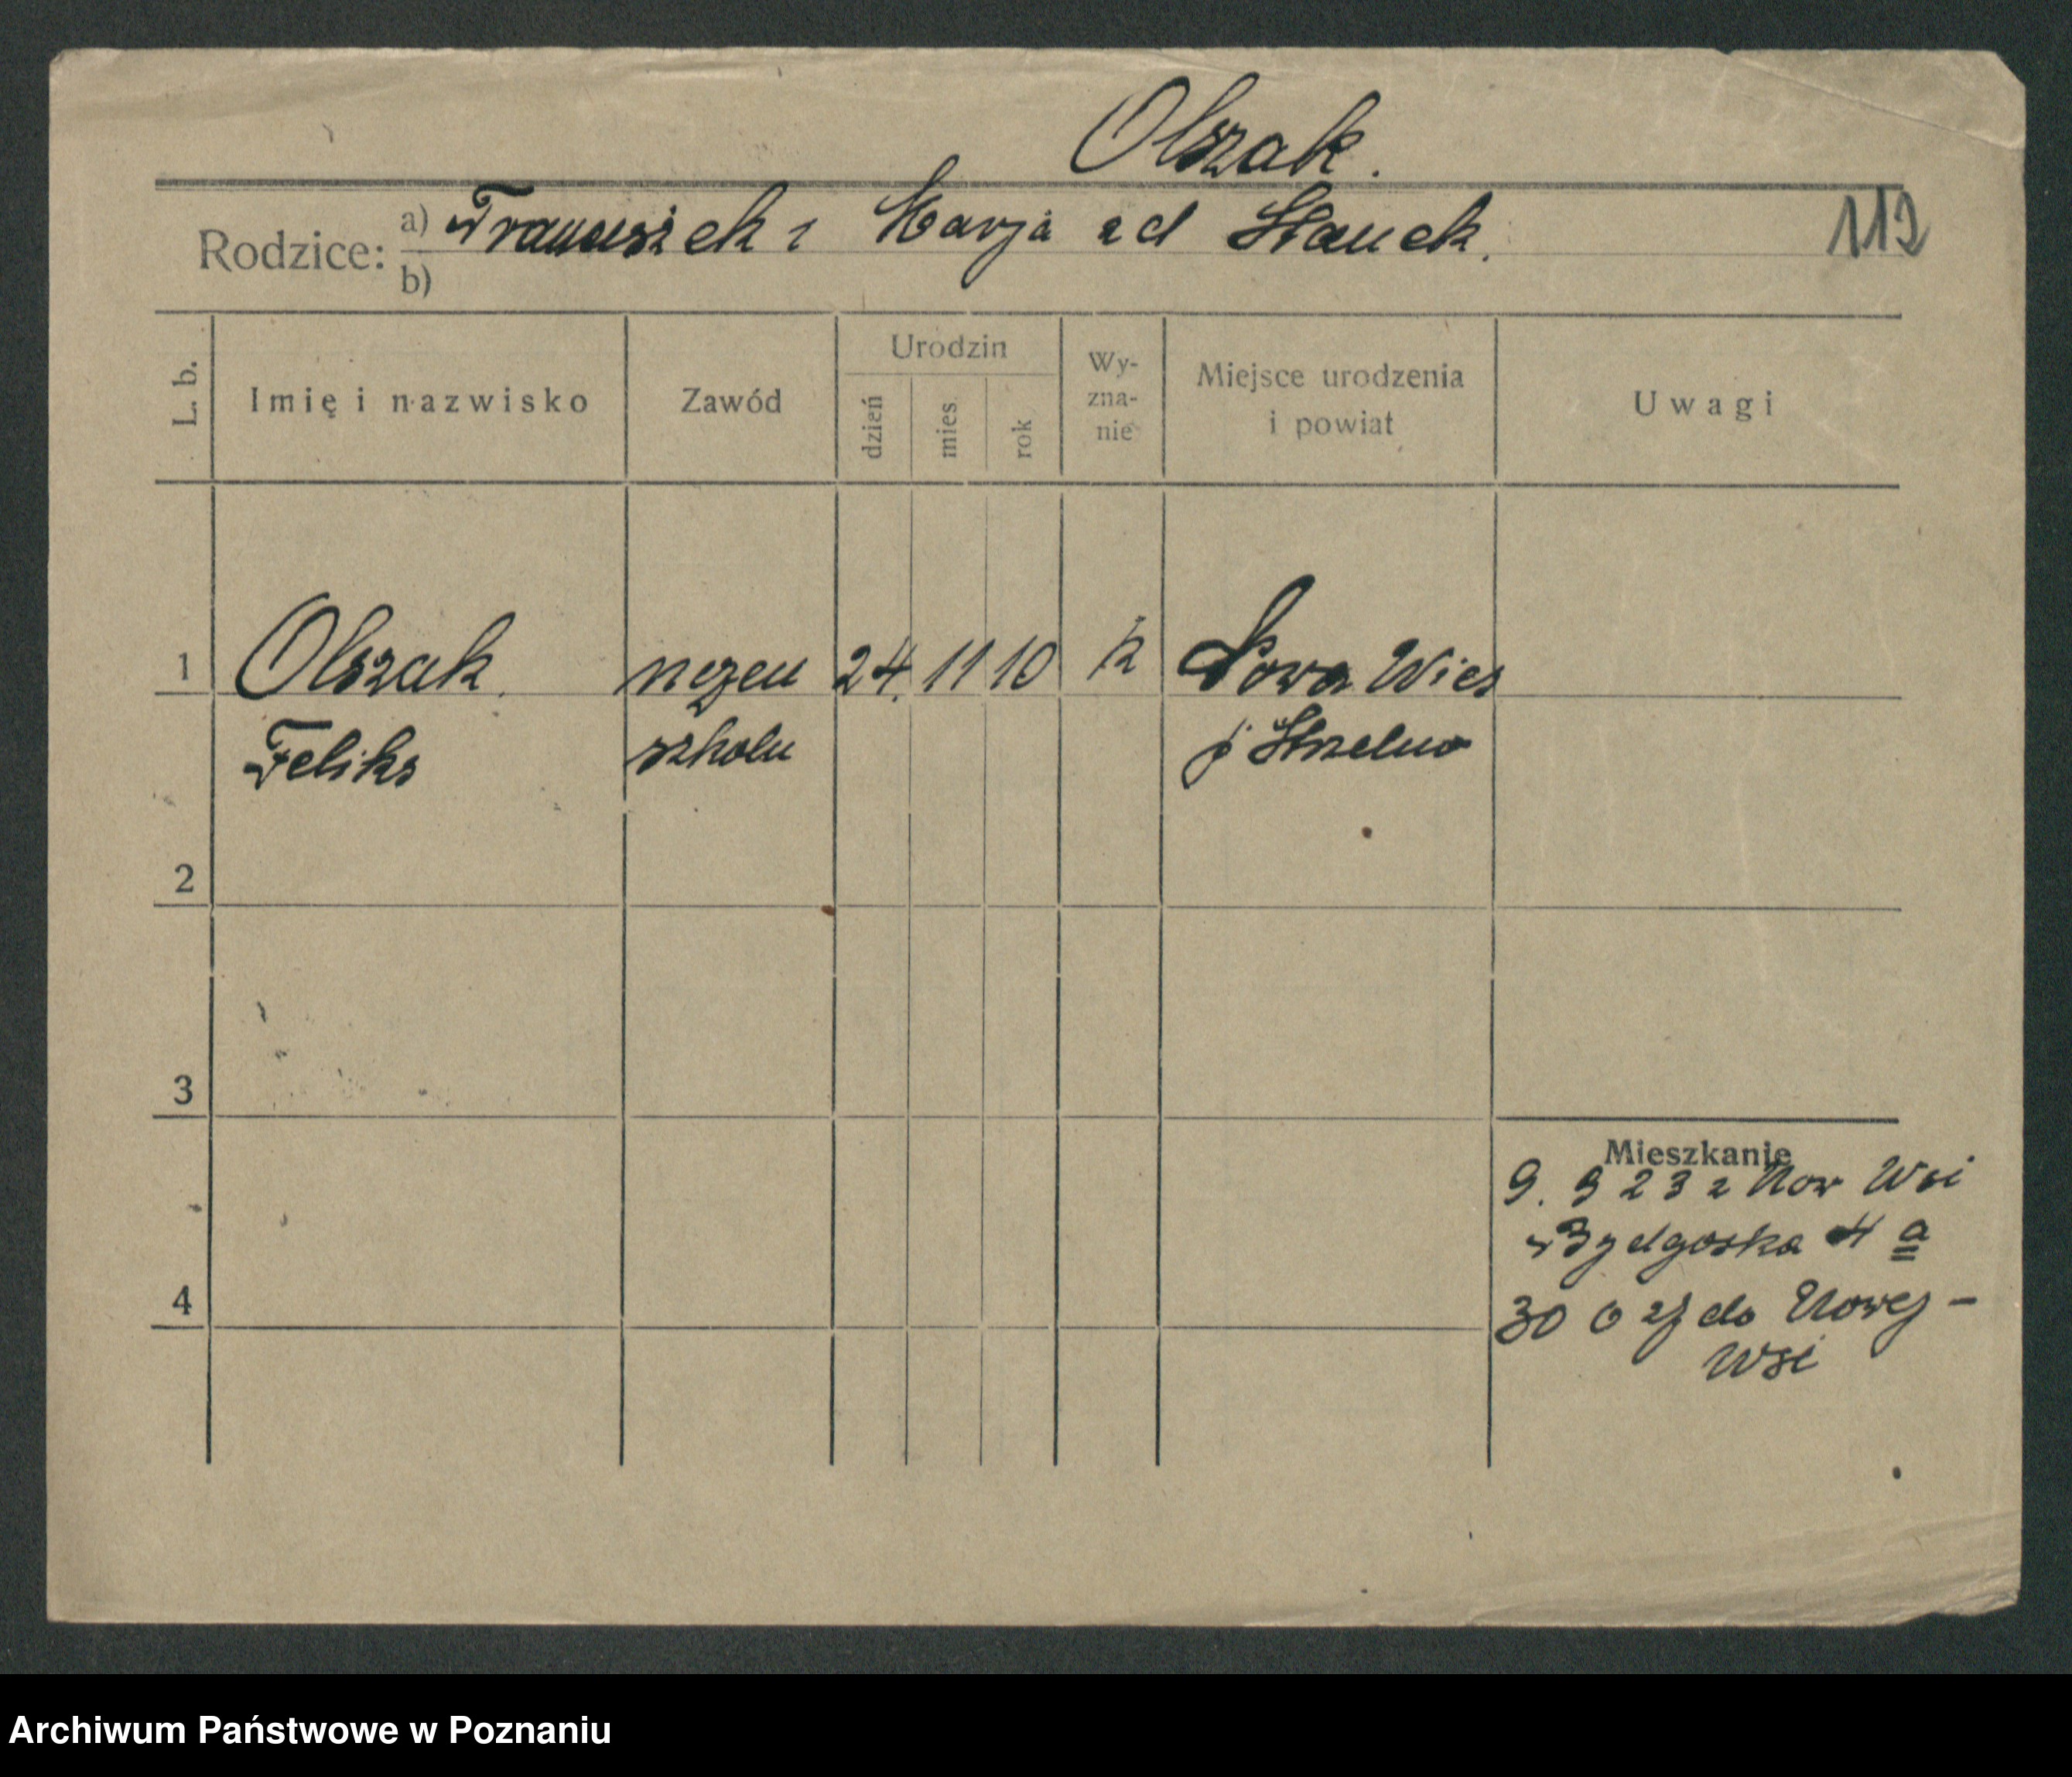 Olszak.
Rodzice: a) Franciszek i Marja zd Stanek.
112
b)
L. b.
Imię i nazwisko
Zawód
Urodzin
dzień
mies.
rok
Wy-
zna-
nie
Miejsce urodzenia
i powiat
Uwagi
1 Olszak uczen 24. 11 10 k Nowa Wies
Feliks szkoln p Strzelno
2
3
Mieszkanie
9. 9 23 z Now Wsi
Bydgoska 4 a
4
30 6 25 do Nowej -
Wsi
Archiwum Państwowe w Poznaniu